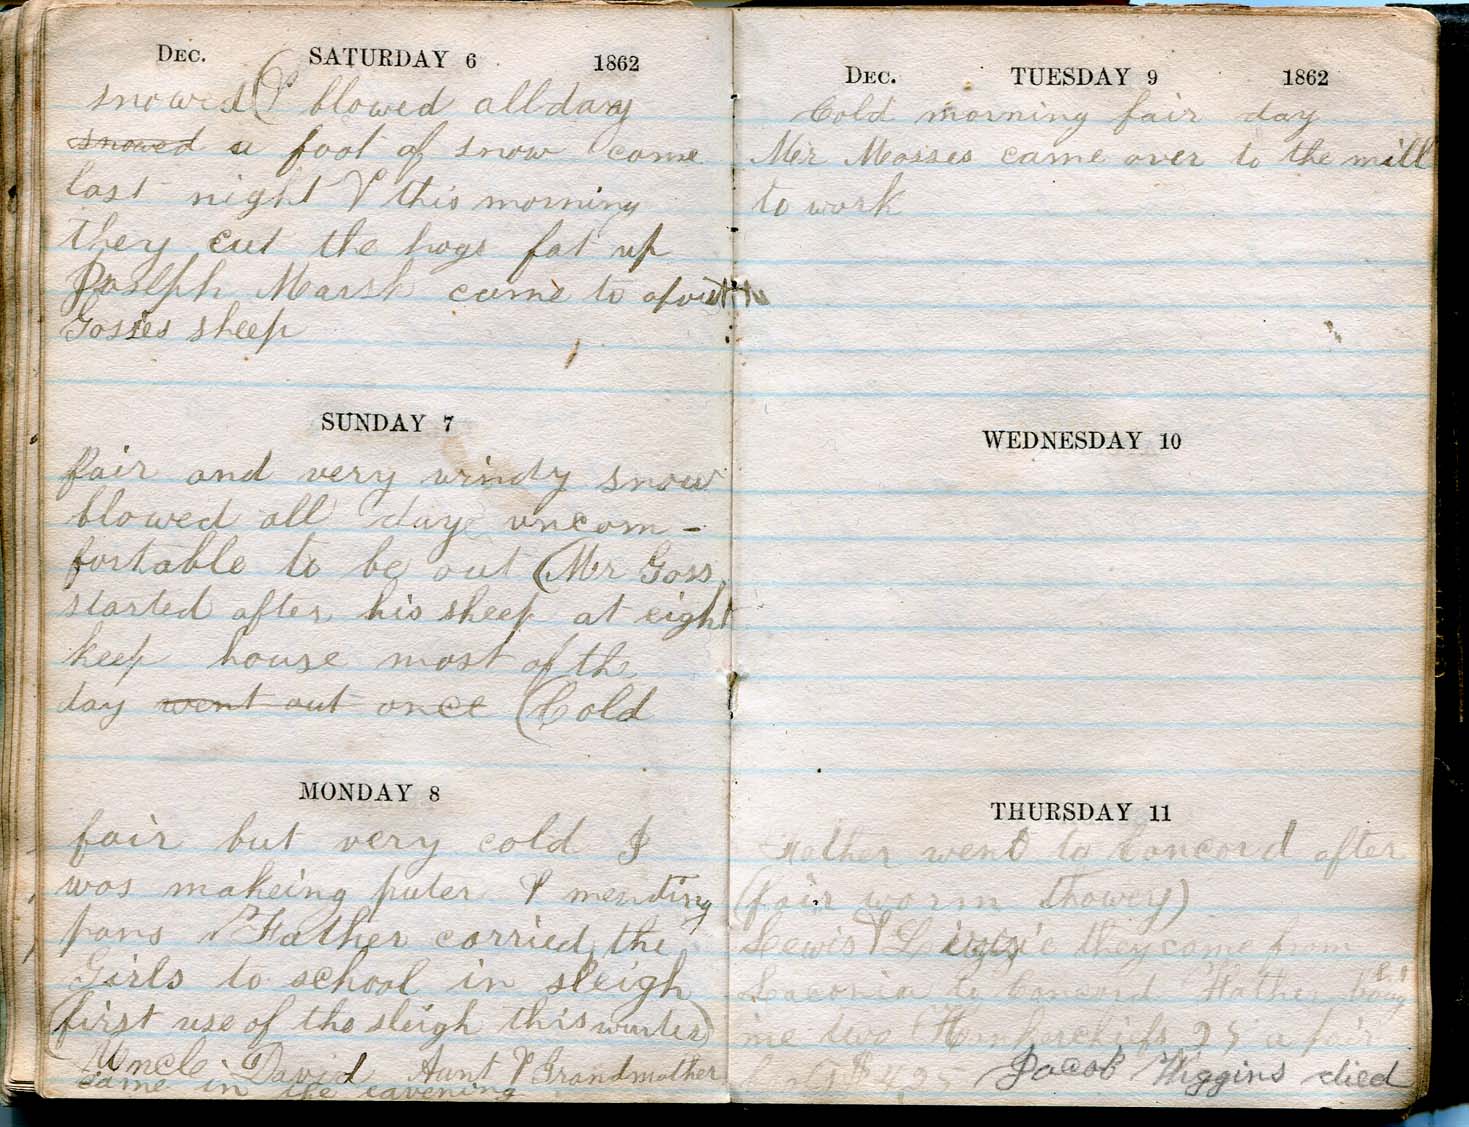 DEC. SATURDAY 6 1862
snowed & blowed all day
snowed a foot of snow come
last night & this morning
they cut the hogs fat up
Joseph Marsh came to
Gosses sheep
SUNDAY 7
fair and very windy snow
blowed all day uncom-
fortable to be out (Mr Goss
started after his sheep at eight
keep house most of the
day went out once (Cold
MONDAY 8
fair but very cold I
was makeing puter & mending
pans Father carried the
Girls to school in sleigh
(first use of the sleigh this winter)
Uncle David Aunt & Grandmother
came in the eavening
DEC. TUESDAY 9 1862
Cold morning fair day
Mr Mosses came over to the mill
to work
WEDNESDAY 10
THURSDAY 11
Father went to Concord after
(fair worm Showery)
Lewis & Lizzie they come from
Laconia to Concord Father
me two 25 a pair
Jacob Wiggins died